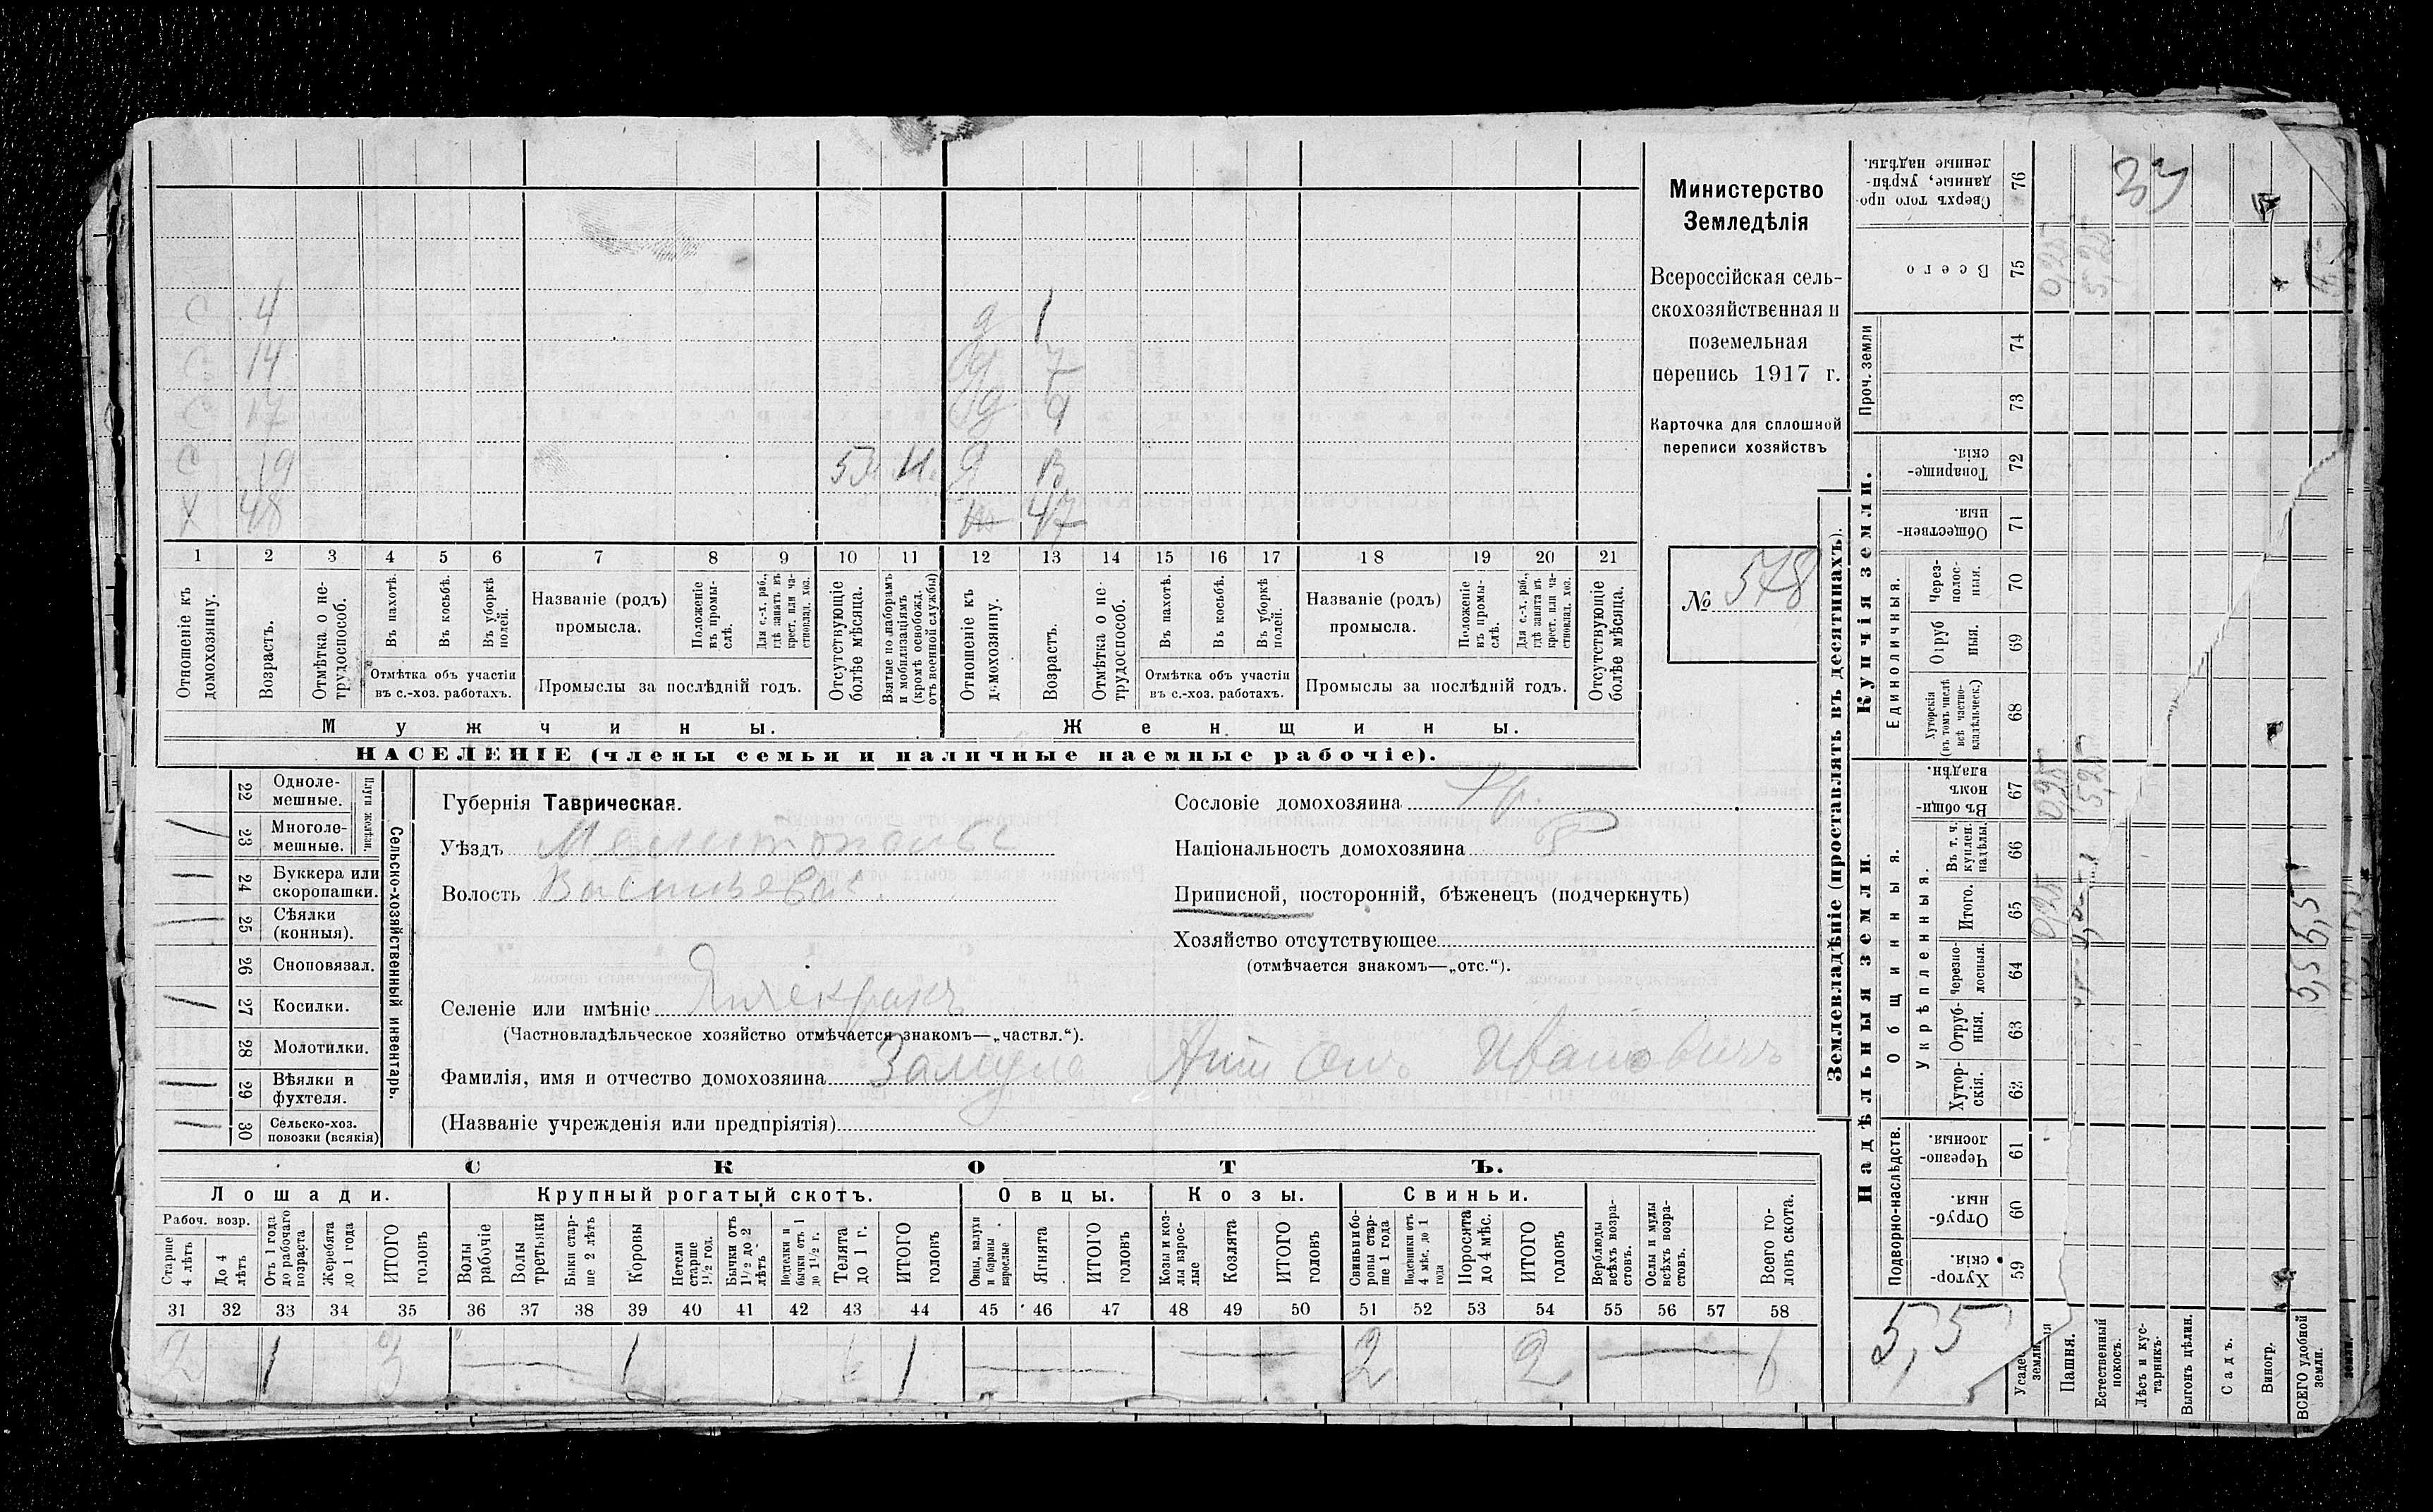 С 4 д 1
С 14 7
С 17 9
С 19 5 М. Д
Х 48 47
1 2 3 4 5 6 7 8 9 10 11 12 13 14 15 16 17 18 19 20 21
Отношеніе къ домохозяину.
Возрастъ.
Отмѣтка о не-трудоспособ.
Въ пахотѣ.
Въ косьбѣ.
Въ уборкѣ полей.
Отмѣтка объ участіи
въ с.-хоз. работахъ.
Названіе (родъ)
промысла.
Положеніе въ промы-слѣ.
Для с.-х. раб., гдѣ занятъ въ крест. или ча-стновлад. хоз.
Промыслы за послѣдній годъ.
Отсутствующіе болѣе мѣсяца.
Взятые по наборамъ и мобилизаціямъ (кромѣ освобожд. отъ военной службы)
Отношеніе къ домохозяину.
Возрастъ.
Отмѣтка о не-трудоспособ.
Въ пахотѣ.
Въ косьбѣ.
Въ уборкѣ полей.
Отмѣтка объ участіи
въ с.-хоз. работахъ.
Названіе (родъ)
промысла.
Положеніе въ промы-слѣ.
Для с.-х. раб., гдѣ занята въ крест. или ча-стновлад. хоз.
Промыслы за послѣдній годъ.
Отсутствующіе болѣе мѣсяца.
Мужчины.
Женщины.
НАСЕЛЕНІЕ (члены семьи и наличные наемные рабочіе).
Министерство
Земледѣлія
Всероссійская сель-
скохозяйственная и
поземельная
перепись 1917 г.
Карточка для сплошной
переписи хозяйствъ
№ 578
22 Одноле-мешные.
23 Многоле-мешные.
Плуги желѣзн.
24 Буккера или скоропашки.
25 Сѣялки (конныя).
26 Сноповязал.
27 Косилки.
28 Молотилки.
29 Вѣялки и фухтеля.
30 Сельско-хоз. повозки (всякія)
Сельско-хозяйственный инвентарь.
Губернія Таврическая.
Уѣздъ Мелитопольс
Волость Васильевск.
Селеніе или имѣніе Янчекракъ
(Частновладѣльческое хозяйство отмѣчается знакомъ—„частвл.“).
Фамилія, имя и отчество домохозяина Замула Антонъ Ивановичъ
(Названіе учрежденія или предпріятія)
Сословіе домохозяина Кр.
Національность домохозяина
Приписной, посторонній, бѣженецъ (подчеркнуть)
Хозяйство отсутствующее
(отмѣчается знакомъ—„отс.“).
СКОТЪ.
Лошади. Крупный рогатый скотъ. Овцы. Козы. Свиньи.
Рабоч. возр.
Старше 4 лѣтъ
До 4 лѣтъ
Отъ 1 года до рабочаго возраста
Жеребята до 1 года
ИТОГО головъ
Волы рабочіе
Волы третьяки
Быки стар-ше 2 лѣтъ
Коровы
Нетели старше 1½ год.
Бычки отъ 1½ до 2 лѣтъ
Подтелки и бычки отъ 1 до 1½ г.
Телята до 1 г.
ИТОГО головъ
Овцы, валухи и бараны взрослые
Ягнята
ИТОГО головъ
Козы и коз-лы взрос-лые
Козлята
ИТОГО головъ
Свиньи и бо-ровы стар-ше 1 года
Подсвинки отъ 4 мѣс. до 1 года
Поросята до 4 мѣс.
ИТОГО головъ
Верблюды всѣхъ возра-стовъ.
Ослы и мулы всѣхъ возра-стовъ.
Всего го-ловъ скота.
31 32 33 34 35 36 37 38 39 40 41 42 43 44 45 46 47 48 49 50 51 52 53 54 55 56 57 58
2 1 3 — 1 1 — — 2 2 — 6
Землевладѣніе (проставлять въ десятинахъ).
Надѣльныя земли.
Купчія земли.
Проч. земли
Общинныя.
Укрѣпленныя.
Единоличныя.
Подворно-наслѣдств.
76 Сверхъ того про-данные, укрѣп-ленные надѣлы.
75 Всего
74
73
72 Товарище-скія.
71 Обществен-ныя.
70 Через-полос-ныя.
69 Отруб-ныя.
68 Хуторскія (въ томъ числѣ всѣ частно-владѣльческ.)
67 Въ общин-номъ владѣн.
66 Въ т. ч. куплен. надѣлы.
65 Итого.
64 Черезпо-лосныя.
63 Отруб-ныя.
62 Хутор-скія.
61 Черезпо-лосныя.
60 Отруб-ныя.
59 Хутор-скія.
0,25 5,25
0,25 5,25
0,25
5,5 5,5
5,5
Пашня.
Естественный покосъ.
Лѣсъ и кус-тарникъ.
Выгонъ цѣлин.
Садъ.
Виногр.
ВСЕГО удобной земли.
земли.